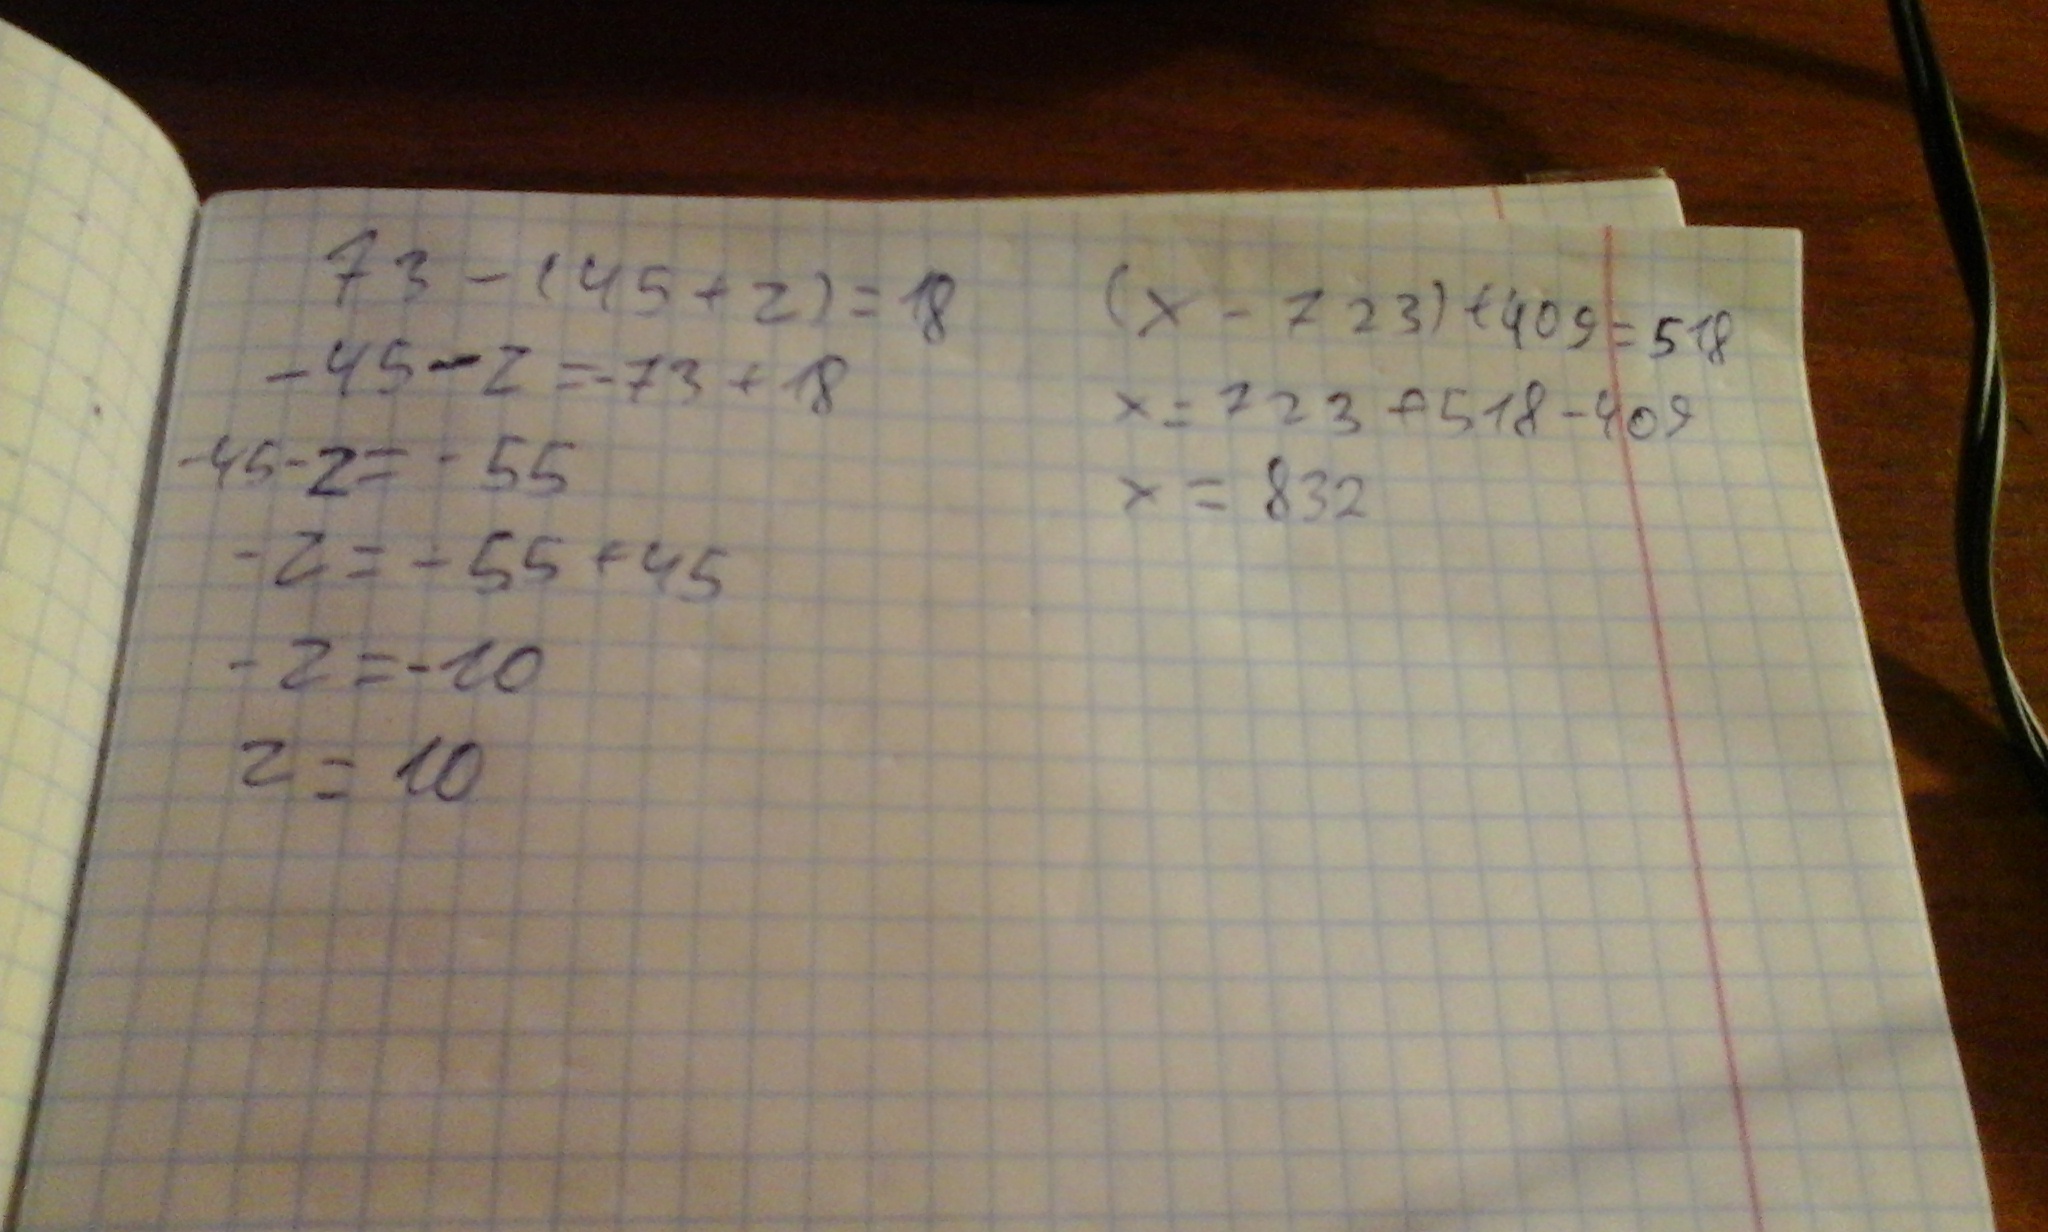 73-(45+z)=18
-45-z=-73+18
-45-z=-55
-z=-55+45
-z=-10
z=10
(x-723)+409=518
x=723+518-409
x=832